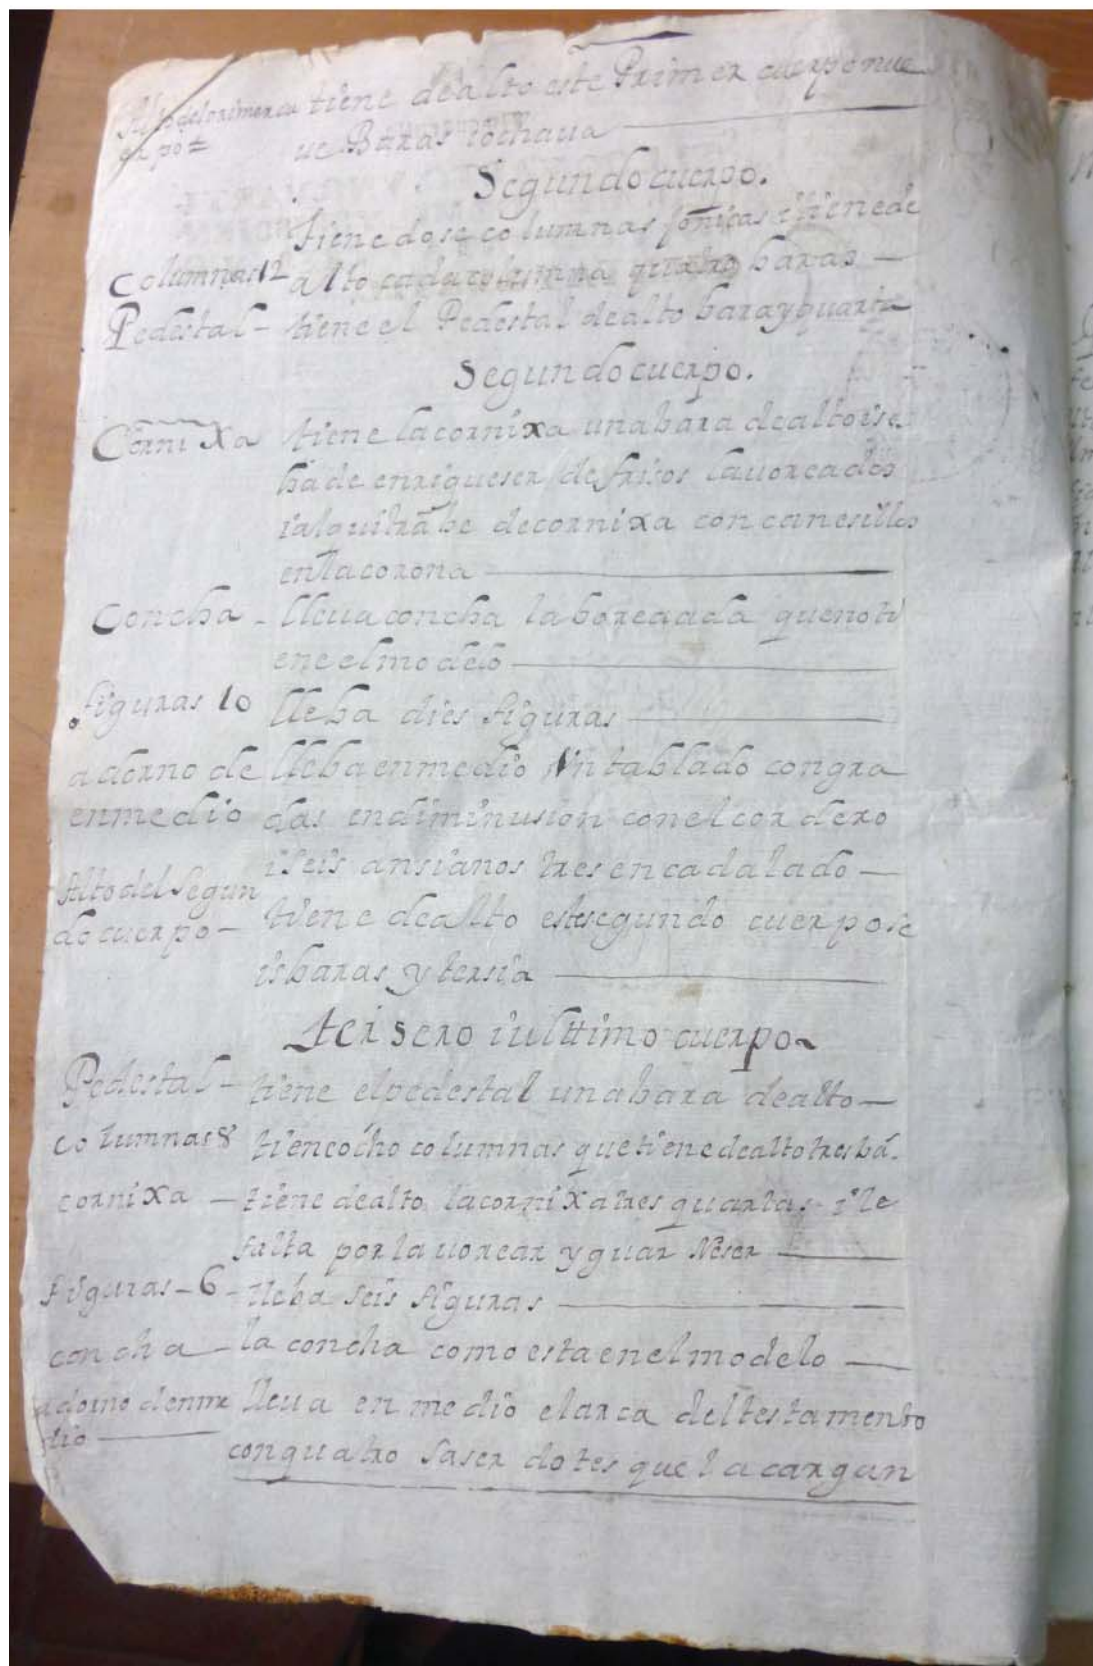 Alto del primer cu tiene de alto este Primer cuerpo nue
erpo = ue Baras iochaua
Segundo cuerpo.
tiene dose columnas Jonicas i tiene de
Columnas 12 alto cada columna quatro baras —
Pedestal - tiene el Pedestal de alto bara y quarta
Segundo cuerpo.
Cornixa tiene la cornixa una bara de alto i se
ha de enriqueser de frisos lauoreados
i alquitrabe de cornixa con canesillos
en la corona
Concha - lleua concha laboreaada que no ti
ene el modelo
figuras 10 lleba dies figuras
adorno de lleba en medio un tablado con gra
enmedio das en diminusion con el cordero
i seis ansianos tres en cada lado —
Alto del Segun tiene de alto este segundo cuerpo se
do cuerpo — is baras y tersia
tersero i ulttimo cuerpo
Pedestal - tiene el pedestal una bara de alto —
columnas 8 tiene ocho columnas que tiene de alto tres bá.
cornixa — tiene de alto la cornixa tres quartas i le
falta por lauorear y guarneser
figuras - 6 - lleba seis figuras
concha - la concha como esta en el modelo —
adorno de enme lleua en medio el arca del testamento
dio — con quatro saserdotes que la cargan